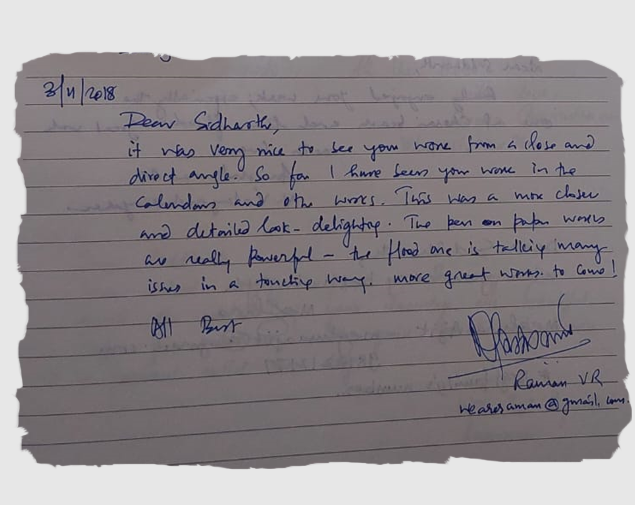 3/11/2018
Dear Sidharth,
it was very nice to see your work from a close and
direct angle. So far I have seen your work in the
Calendars and other works. This was a more closer
and detailed look - delightful. The pen on paper works
are really powerful - the flood one is talking many
issues in a touching way. more great works to come!
All Best
Raman VR